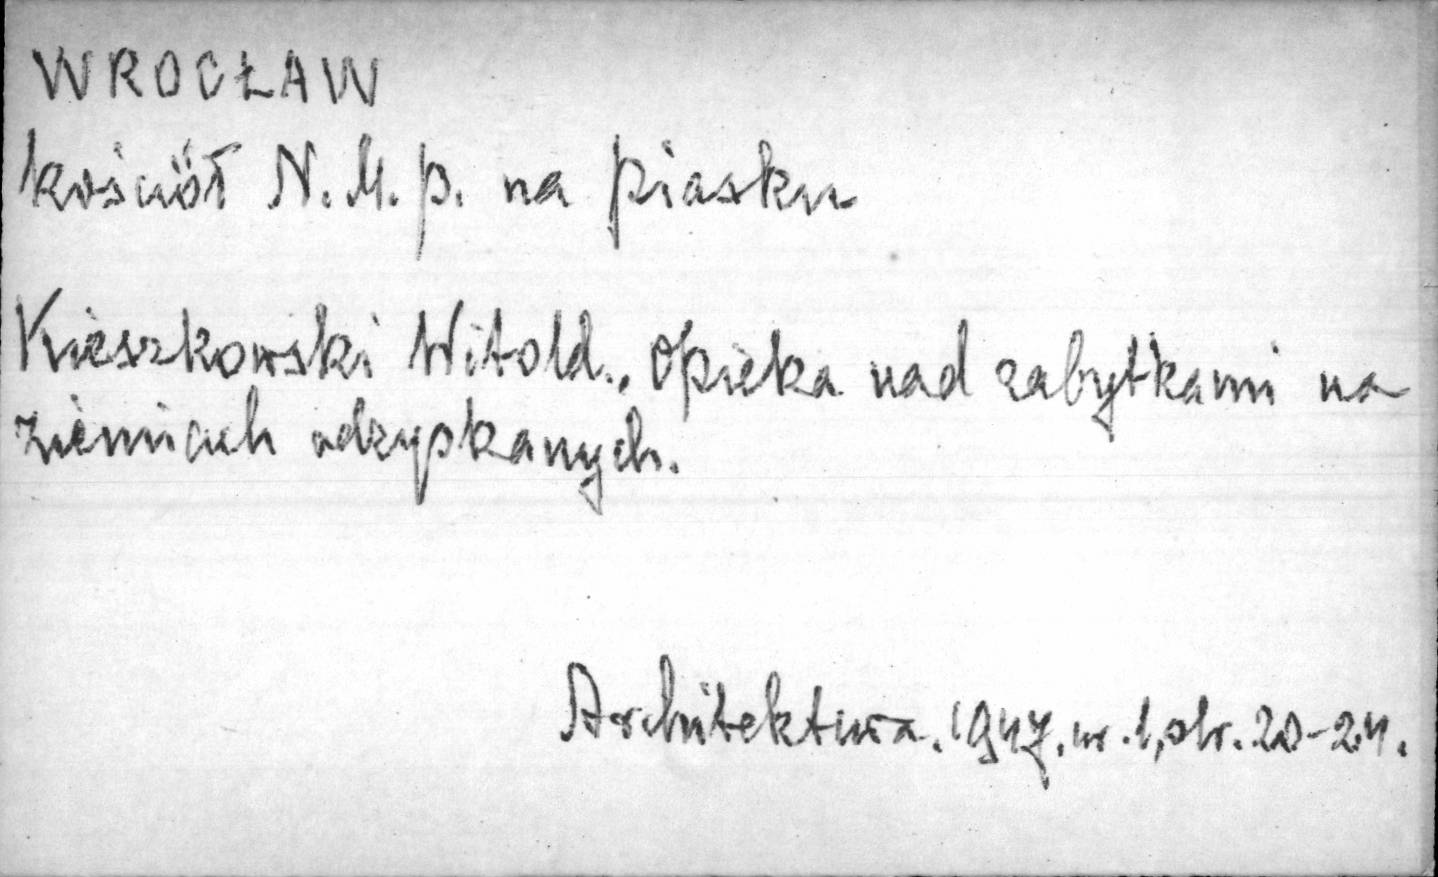 WROCŁAW
kościół N.M.P. na Piasku
Kieszkowski Witold., Opieka nad zabytkami na
ziemiach odzyskanych.
Architektura. 1947. nr. 1, str. 20-24.